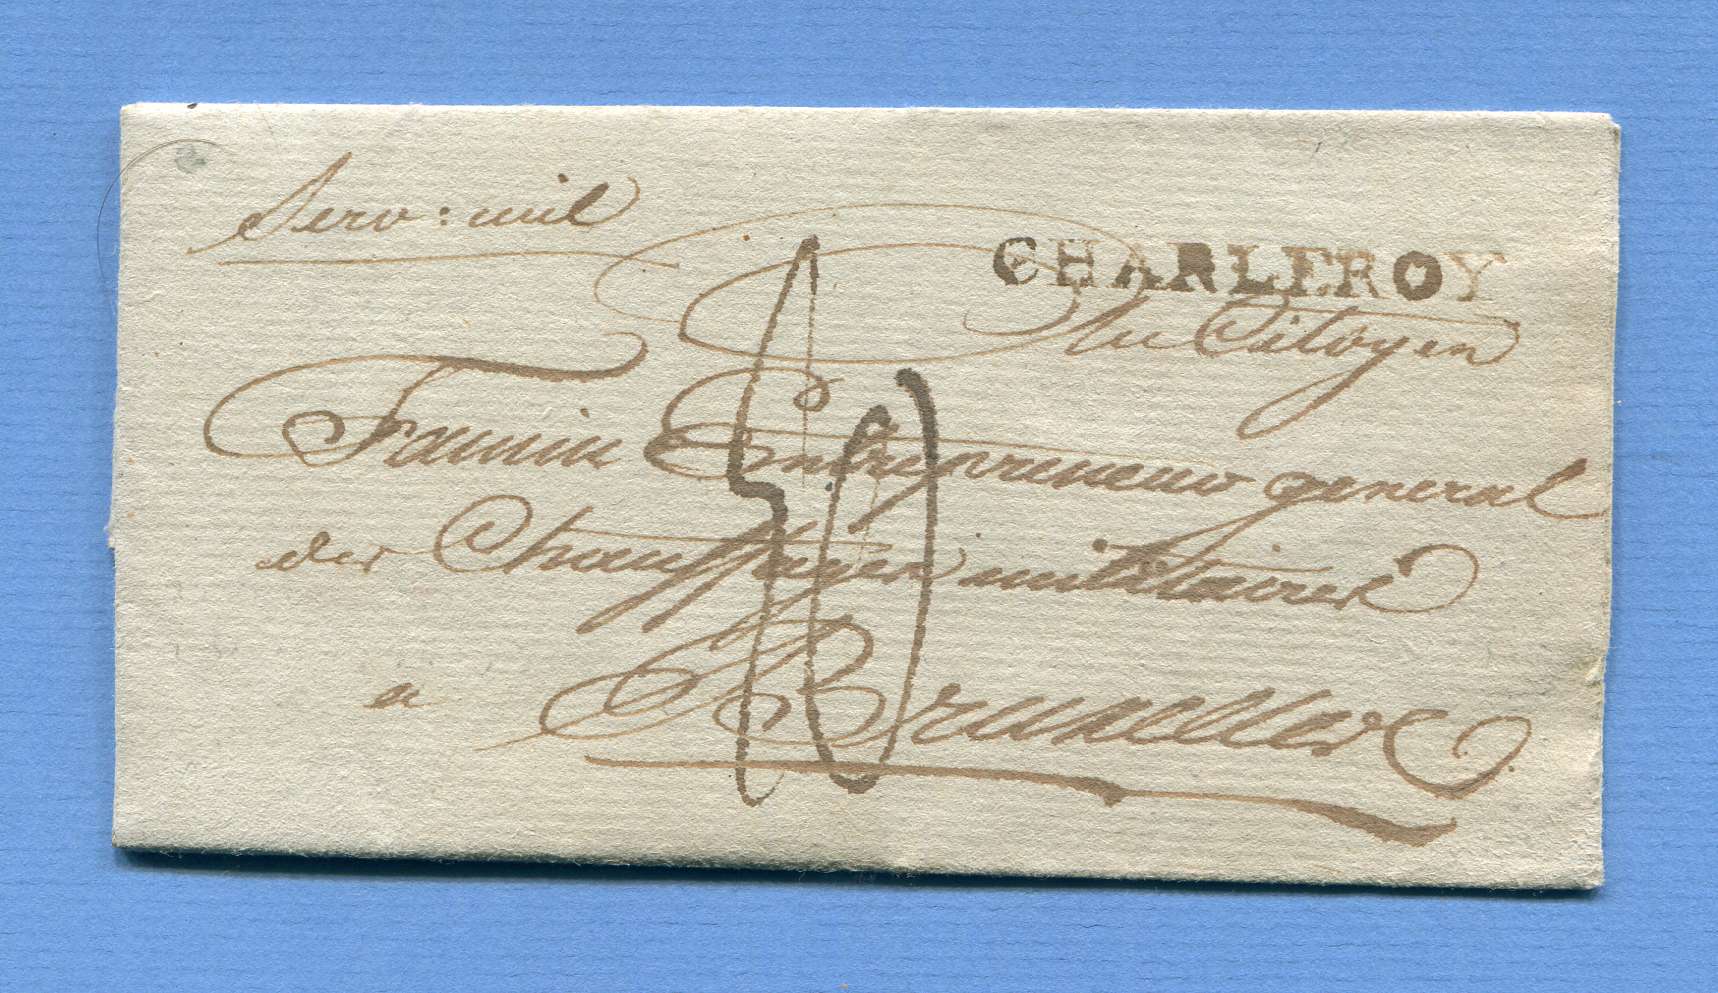 Serv: mil
CHARLEROY
Au Citoyen
Entrepreneur general
des Chauffages militaires
a Bruxelles